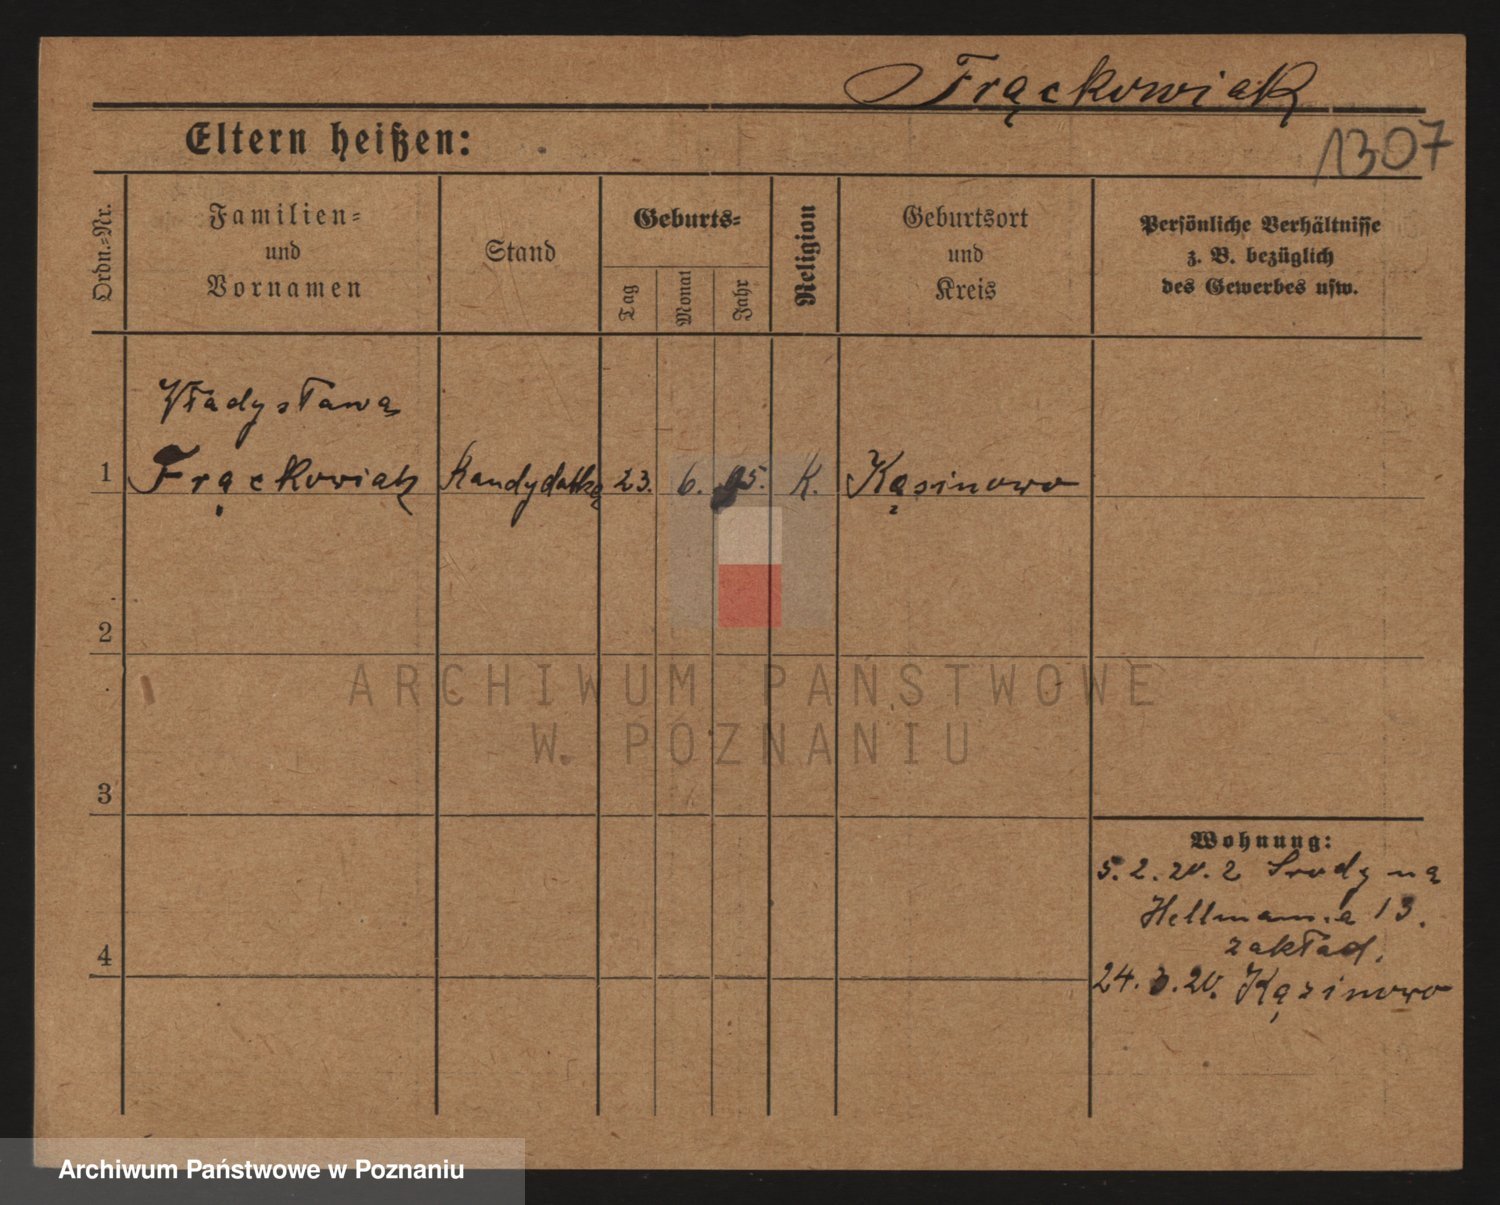 Frąckowiak
1307
Eltern heißen:
Ordn.=Nr.
Familien=
und
Vornamen
Stand
Geburts=
Tag
Monat
Jahr
Religion
Geburtsort
und
Kreis
Persönliche Verhältnisse
z. B. bezüglich
des Gewerbes usw.
Władysława
1 Frąckowiak Kandydatką 23. 6. 95. K. Kąsinowo
2
ARCHIWUM PAŃSTWOWE
W POZNANIU
3
Wohnung:
5.2.20. z Srody na
Hellmanna 13.
zakład.
4
24.3.20. Kąsinowo
Archiwum Państwowe w Poznaniu